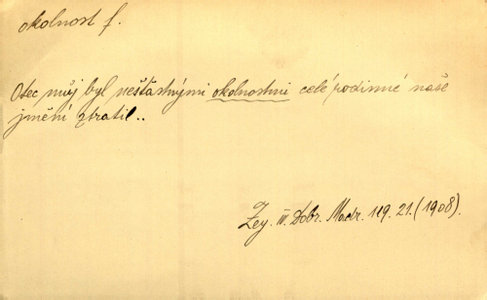 okolnost f.
Otec můj byl nešťastnými okolnostmi celé rodinné naše
jmění ztratil..
Zey. III. Dobr. Madr. 119. 21. (1908).